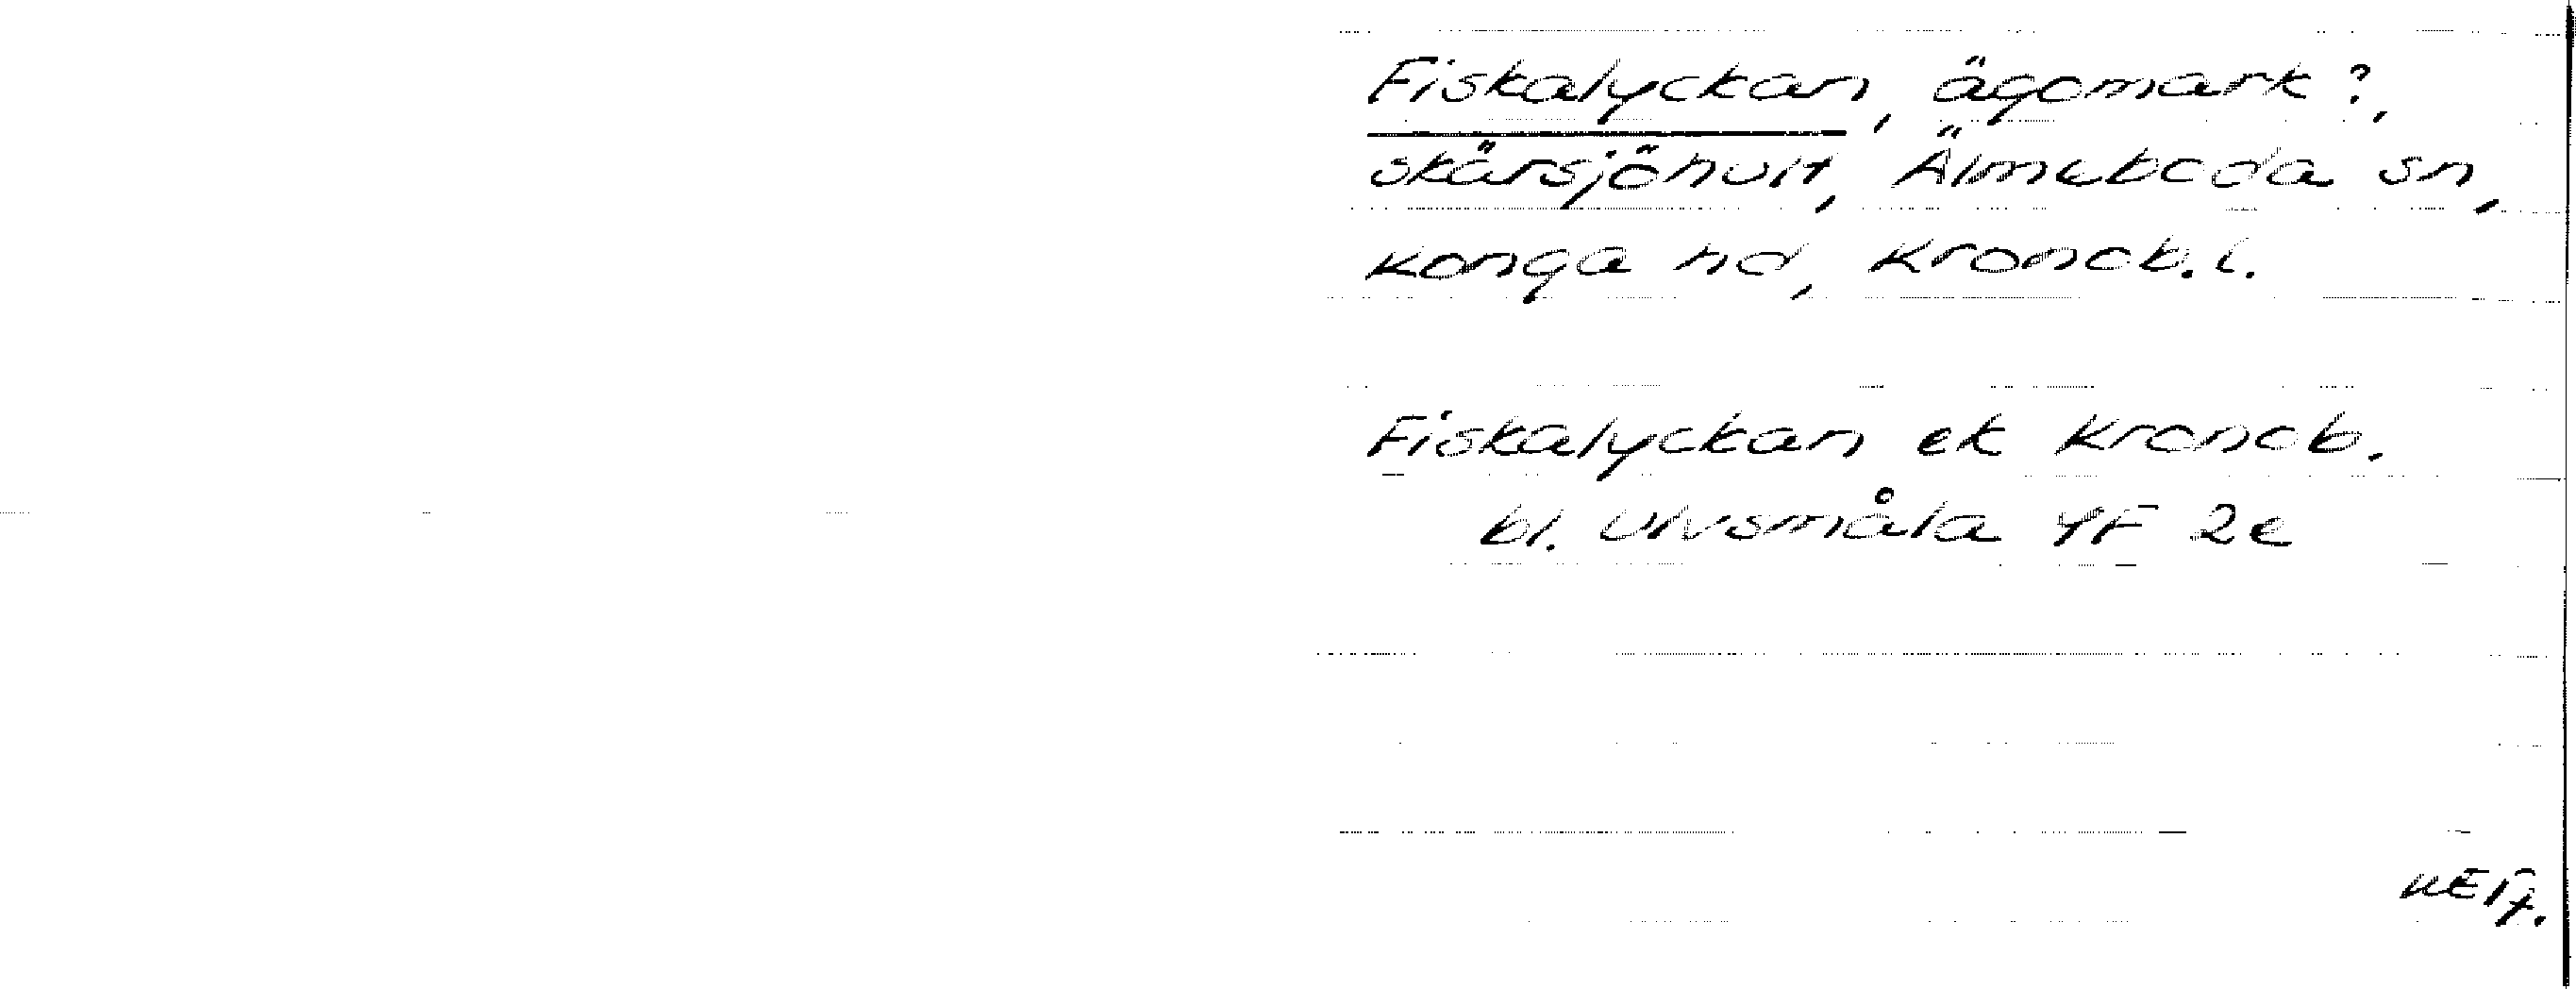 Fiskalyckan, ägomark?,
Skärsjöhult, Älmeboda sn,
Konga hd, Kronob. l.
Fiskalyckan ek Kronob.
bl. Ulvsmåla 4F 2e